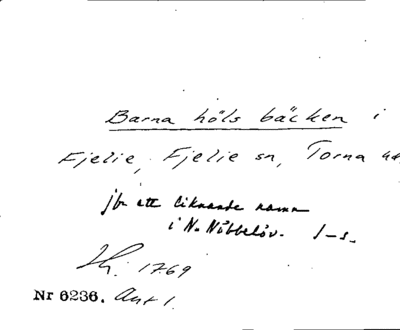 Barna höls bäcken i
Fjelie, Fjelie sn, Torna hd
jfr ett liknande namn
i N. Nöbbelöv. J-s.
1769
Nr 6236. Avt 1.